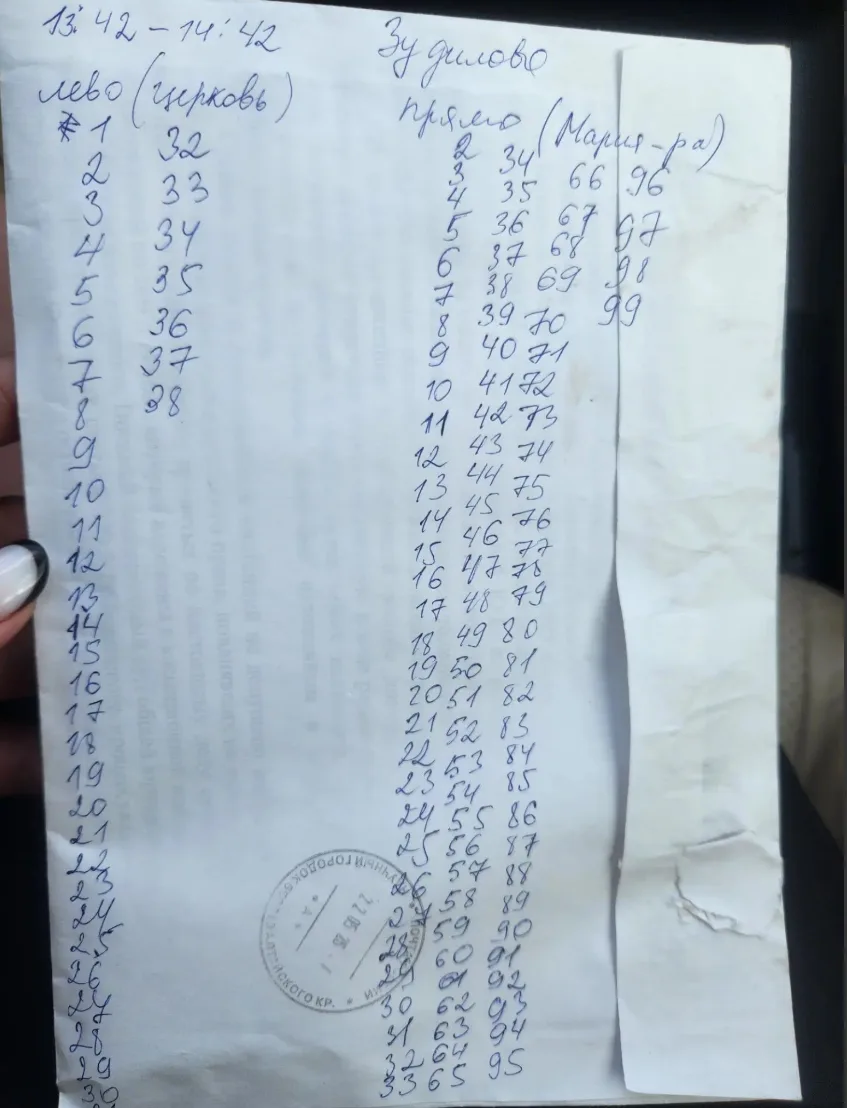 13:42 - 14:42
Зудилово
лево (церковь)
прямо (Мария-ра)
1 32
2 33
3 34
4 35
5 36
6 37
7 38
8
9
10
11
12
13
14
15
16
17
18
19
20
21
22
23
24
25
26
27
28
29
30
2
3 34 66 96
4 35 67 97
5 36 68 98
6 37 69 99
7 38 70
8 39 71
9 40 72
10 41 73
11 42 74
12 43 75
13 44 76
14 45 77
15 46 78
16 47 79
17 48 80
18 49 81
19 50 82
20 51 83
21 52 84
22 53 85
23 54 86
24 55 87
25 56 88
26 57 89
27 58 90
28 59 91
29 60 92
30 61 93
31 62 94
32 63 95
33 64
65
НАУЧНЫЙ ГОРОДОК
СКОГО КР.